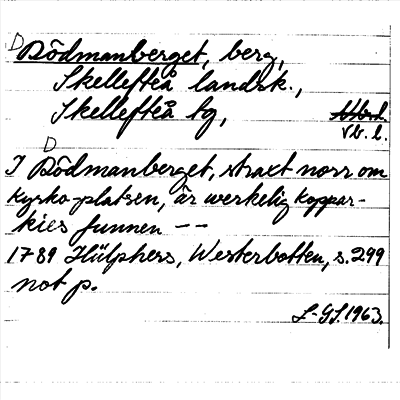 D
Dödmanberget, berg,
Skellefteå landsk.,
Skellefteå tg, V.b.l.
D
I Dödmanberget, straxt norr om
kyrko platsen, är werkelig koppar-
kies funnen --
1789 Hülphers, Westerbotten, s. 299
not p.
L-GS. 1963.